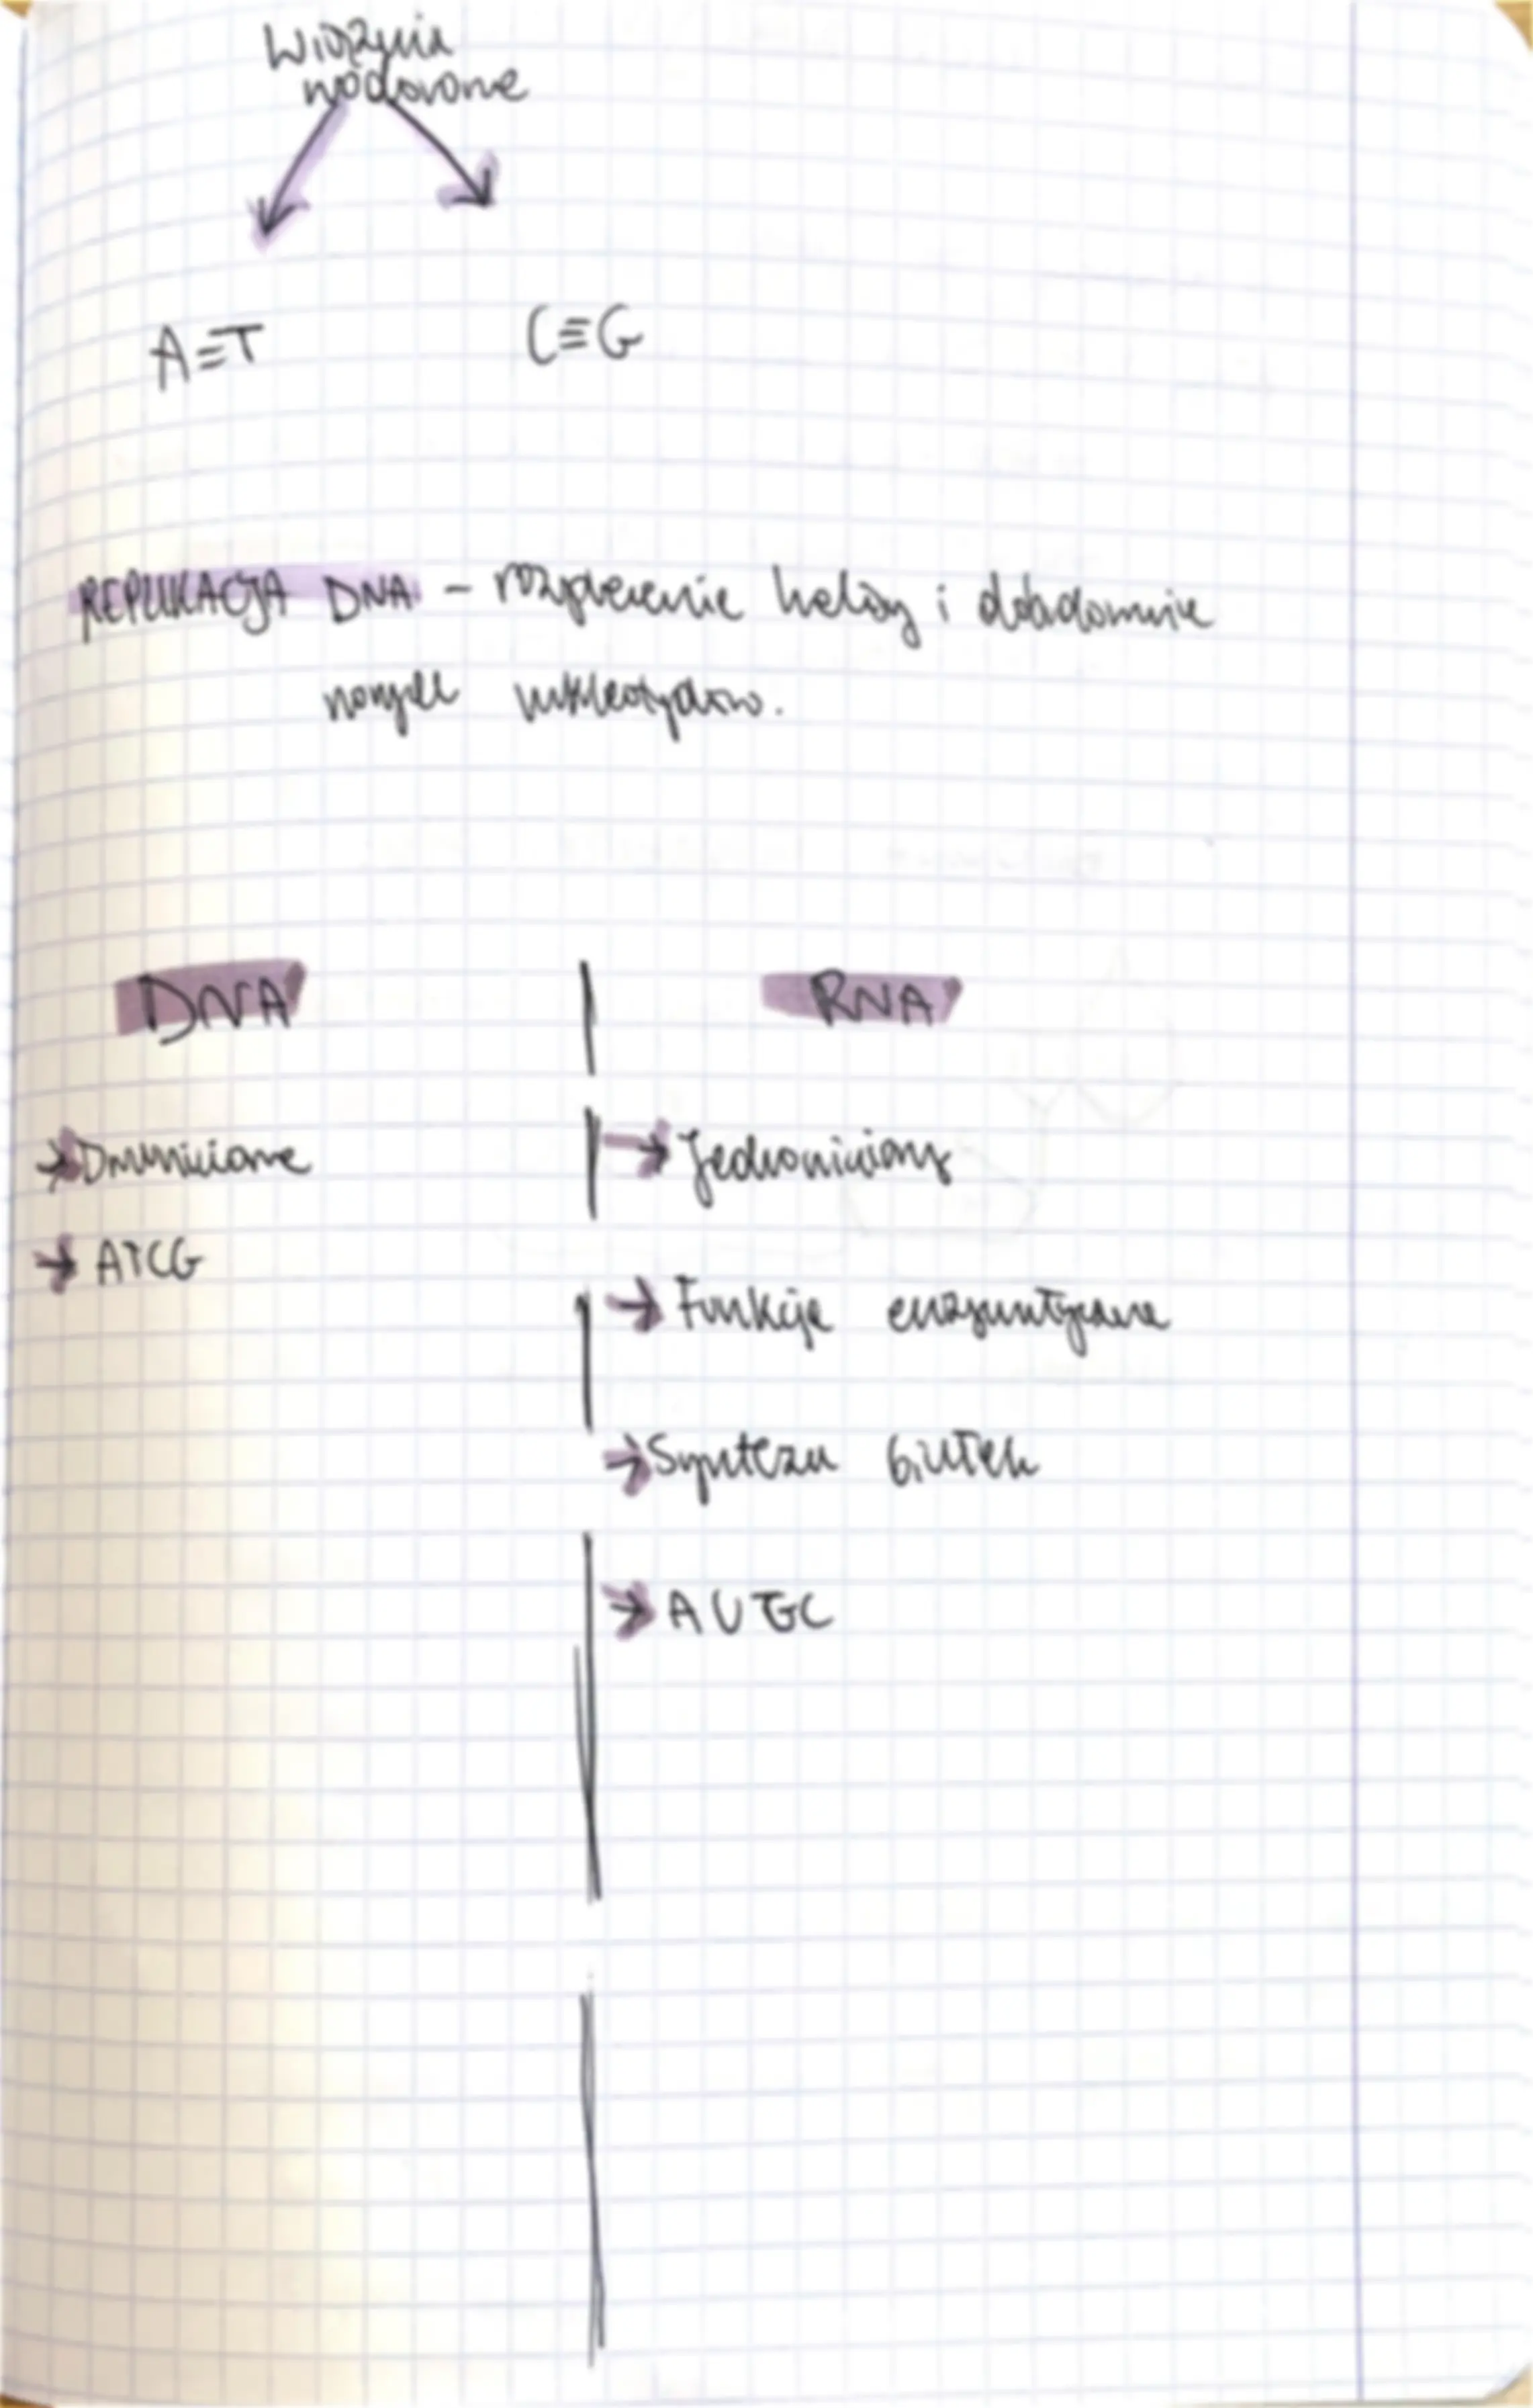 Wiązania
wodorowe
A=T C≡G
REPLIKACJA DNA - rozplecenie helisy i dobudowanie
nowych nukleotydów.
DNA RNA
→ Dwuniciowe → Jednoniciowy
→ ATCG
→ Funkcje enzymatyczne
→ Synteza białek
→ AUGC